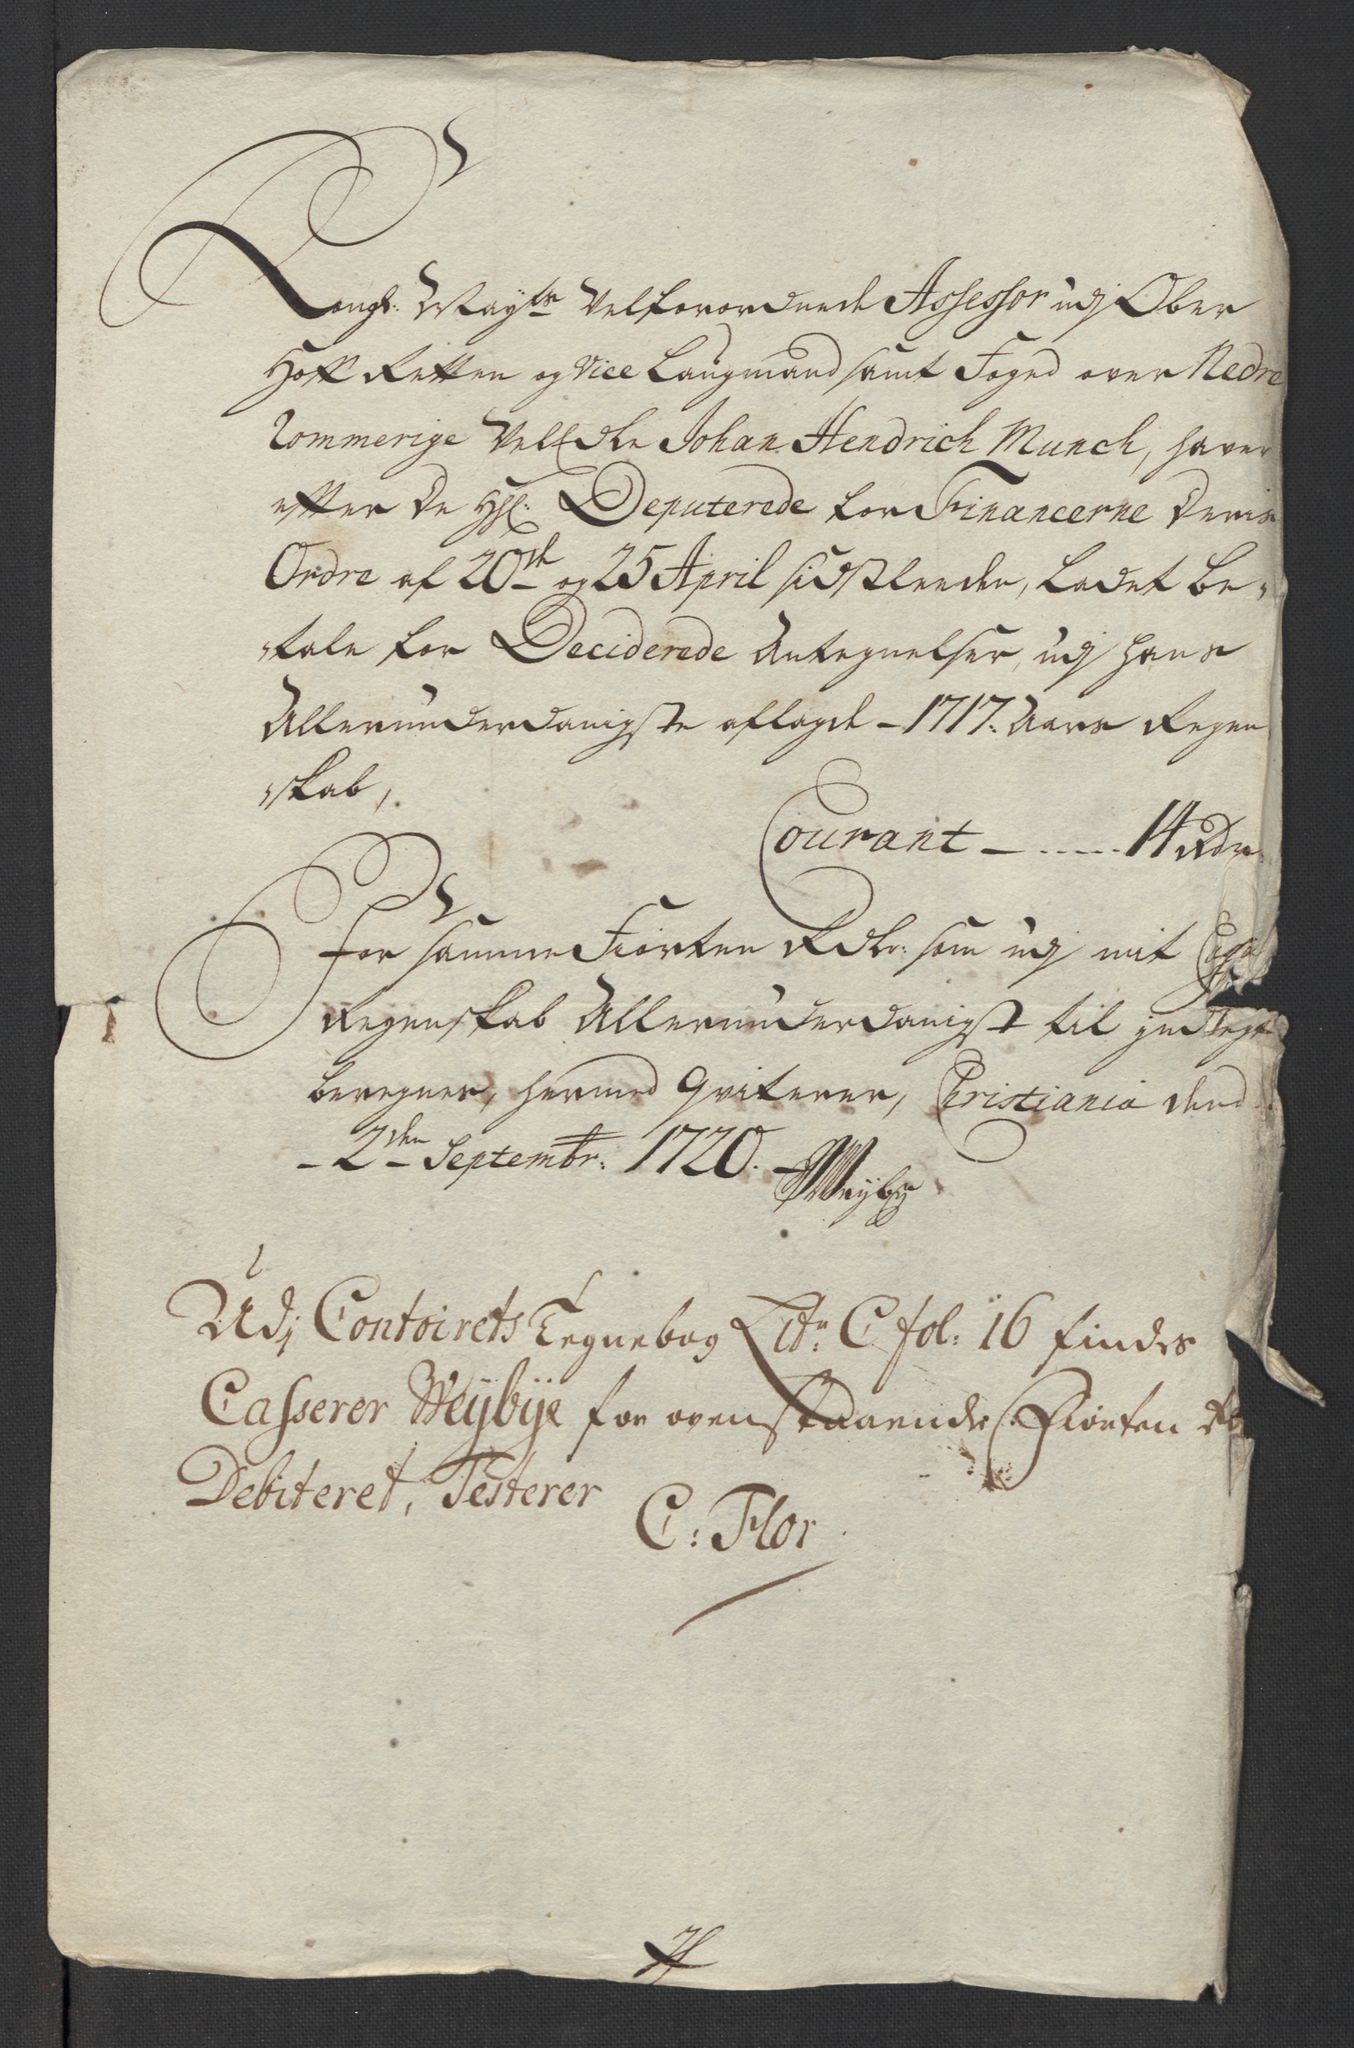 Kongl: Mayts Velforordnede Assessor udj Ober
Hoff Retten og Vice Laugmand samt Foged over Nedre
Rommerige VelEdle Johan Hendrich Munch, haver
efter De HHl: Deputerede for Financerne Deris
Ordre af 20de og 25 April sidstleeden, ladet be-
tale for Deciderede Antegnelser udj hans
Allerunderdanigste aflagde 1717: Aars Regen
skab,
Courant - ..... 14 Rdr
For samme Fiorten Rdlr: som udj mit Cassa
Regenskab Allerunderdanigst til Indtegt
beregnes, hermed Qviterer, Christiania dend
- 2den Septembr: 1720. Weyby
Udj Contoirets Tegnebog Litr: C fol: 16 findes
Casserer Weybye for ovenstaaende Fiorten Rd
Debiteret, Testerer
C: Flor